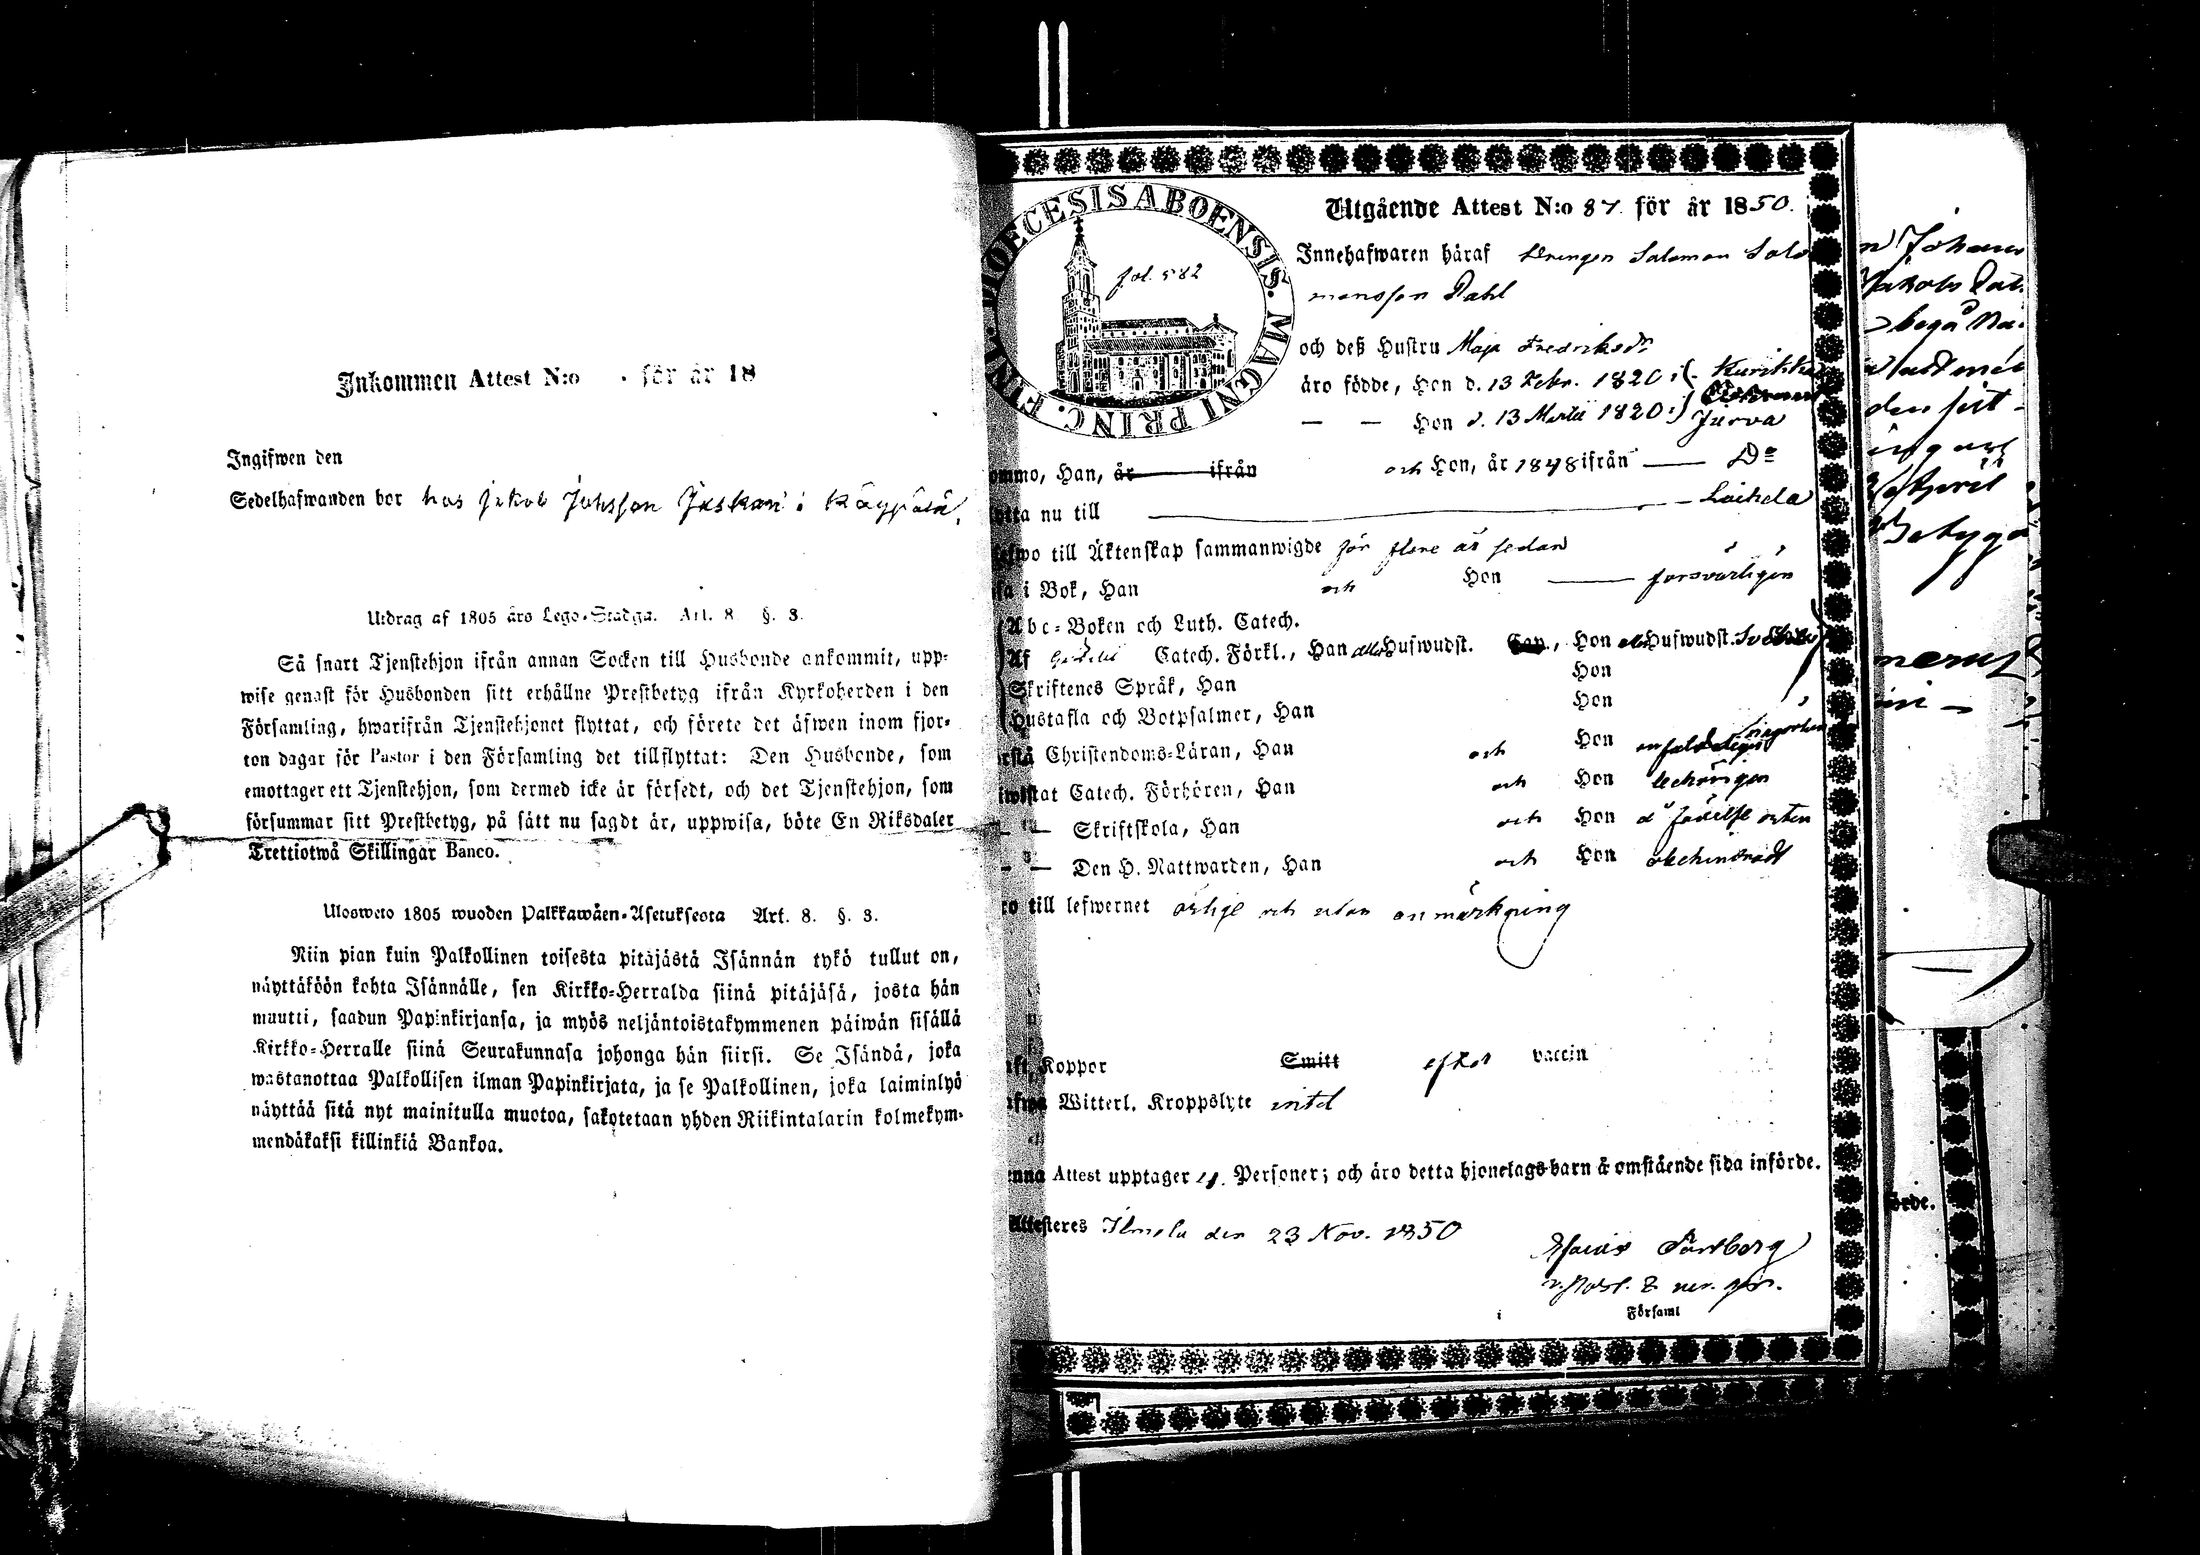 Inkommen Attest N:o . för år 18
Ingifwen den
Sedelhafwanden bor hos Jakob Johsson i
Utdrag af 1805 års Lego-Stadga. Art. 8. §. 3.
Så snart Tjenstehjon ifrån annan Socken till Husbonde ankommit, upp-
wise genast för Husbonden sitt erhållne Prestbetyg ifrån Kyrkoherden i den
Församling, hwarifrån Tjenstehjonet flyttat, och förete det äfwen inom fjor-
ton dagar för Pastor i den Församling det tillflyttat: Den Husbonde, som
emottager ett Tjenstehjon, som dermed icke är försedt, och det Tjenstehjon, som
försummar sitt Prestbetyg, på sätt nu sagdt är, uppwisa, böte En Riksdaler
Trettiotwå Skillingar Banco.
Ulosweto 1805 wuoden Palkkawäen-Asetuksesta Art. 8. §. 3.
Niin pian kuin Palkollinen toisesta pitäjästä Isännän tykö tullut on,
näyttäköön kohta Isännälle, sen Kirkko-Herralda siinä pitäjäsä, josta hän
muutti, saadun Papinkirjansa, ja myös neljäntoistakymmenen päiwän sisällä
Kirkko-Herralle siinä Seurakunnasa johonga hän siirsi. Se Isändä, joka
wastanottaa Palkollisen ilman Papinkirjata, ja se Palkollinen, joka laiminlyö
näyttää sitä nyt mainitulla muotoa, sakotetaan yhden Riikintalarin kolmekym-
mendäkaksi killinkiä Bankoa.
DIOECESIS ABOENSIS. MAGNI PRINC. FINL.
fol. 582
Utgående Attest N:o 87. för år 1850.
Innehafwaren häraf Drengen Salomon Salo
monsson Dahl
och deß Hustru Maja Fredriksdr
äro födde, Han d. 13 Febr. 1820 i Kurikka
— — Hon d. 13 Martii 1820 Jurva
ommo, Han, år ifrån och Hon, år 1848 ifrån — Do
ytta nu till — Laihela
efwo till Äktenskap sammanwigde för flere år sedan
sa i Bok, Han och Hon — försvarligen
Abc-Boken och Luth. Catech.
Af Catech. Förkl., Han alla Hufwudst. Cap., Hon alla Hufwudst.
Skriftenes Språk, Han Hon
Hustafla och Botpsalmer, Han Hon
rstå Christendoms-Läran, Han och Hon
iwistat Catech. Förhören, Han och Hon behörigen
— — Skriftskola, Han och Hon å födelse orten
— — Den H. Nattwarden, Han och Hon obehindradt
ro till lefwernet ärlige och utan anmärkning
aft Koppor Smitt efter vaccin
afwa Witterl. Kroppslyte intet
enna Attest upptager 4. Personer; och äro detta hjonelags barn å omstående sida införde.
Attesteres Ilmola den 23 Nov. 1850
v. Past.
i Församl
n Johans
Jakobs
begå Na
den sist
Betyga
örde.